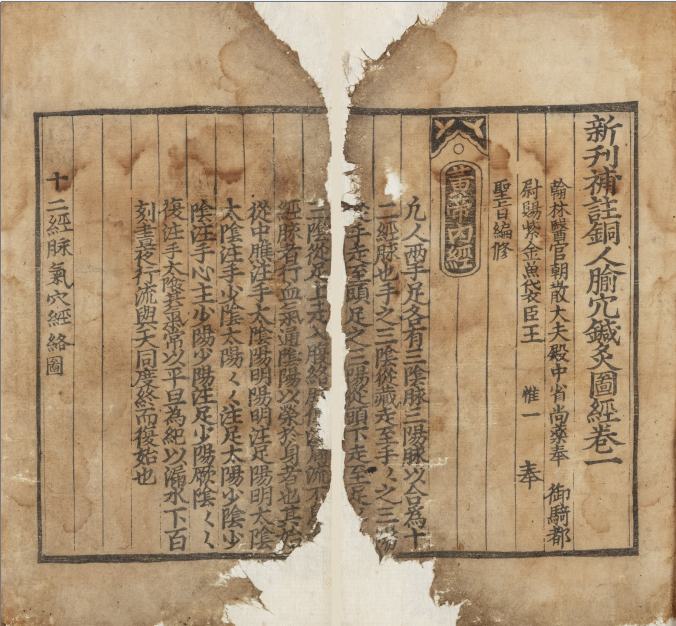 新刊補註銅人腧穴鍼灸圖經卷一
翰林醫官朝散大夫殿中省尚藥奉 御騎都
尉賜紫金魚袋臣王 惟一 奉
聖旨編修
黃帝內經
凡人兩手足各有三陰脉三陽脉以合為十
二經脉也手之三陰從藏走至手々之三陽
從手走至頭足之三陽從頭下走至足
三陰從足上走入腹絡 流不
經脉者行血氣通陰陽以榮於身者也其始
從中膲注手太陰陽明陽明注足陽明太陰
太陰注手少陰太陽々々注足太陽少陰少
陰注手心主少陽少陽注足少陽厥陰々々
復注手太陰其氣常以平旦為紀以漏水下百
刻晝夜行流與天同度終而復始也
十二經脉氣穴經絡圖